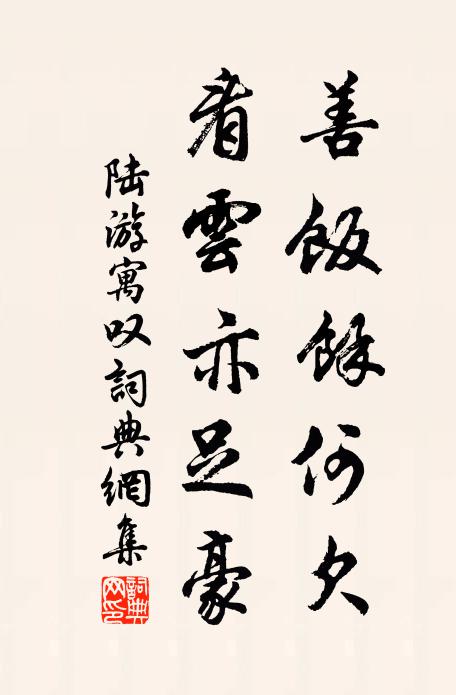 善飯餘何欠
看雲亦足豪
陆游寓叹詞典網集
詞典網印